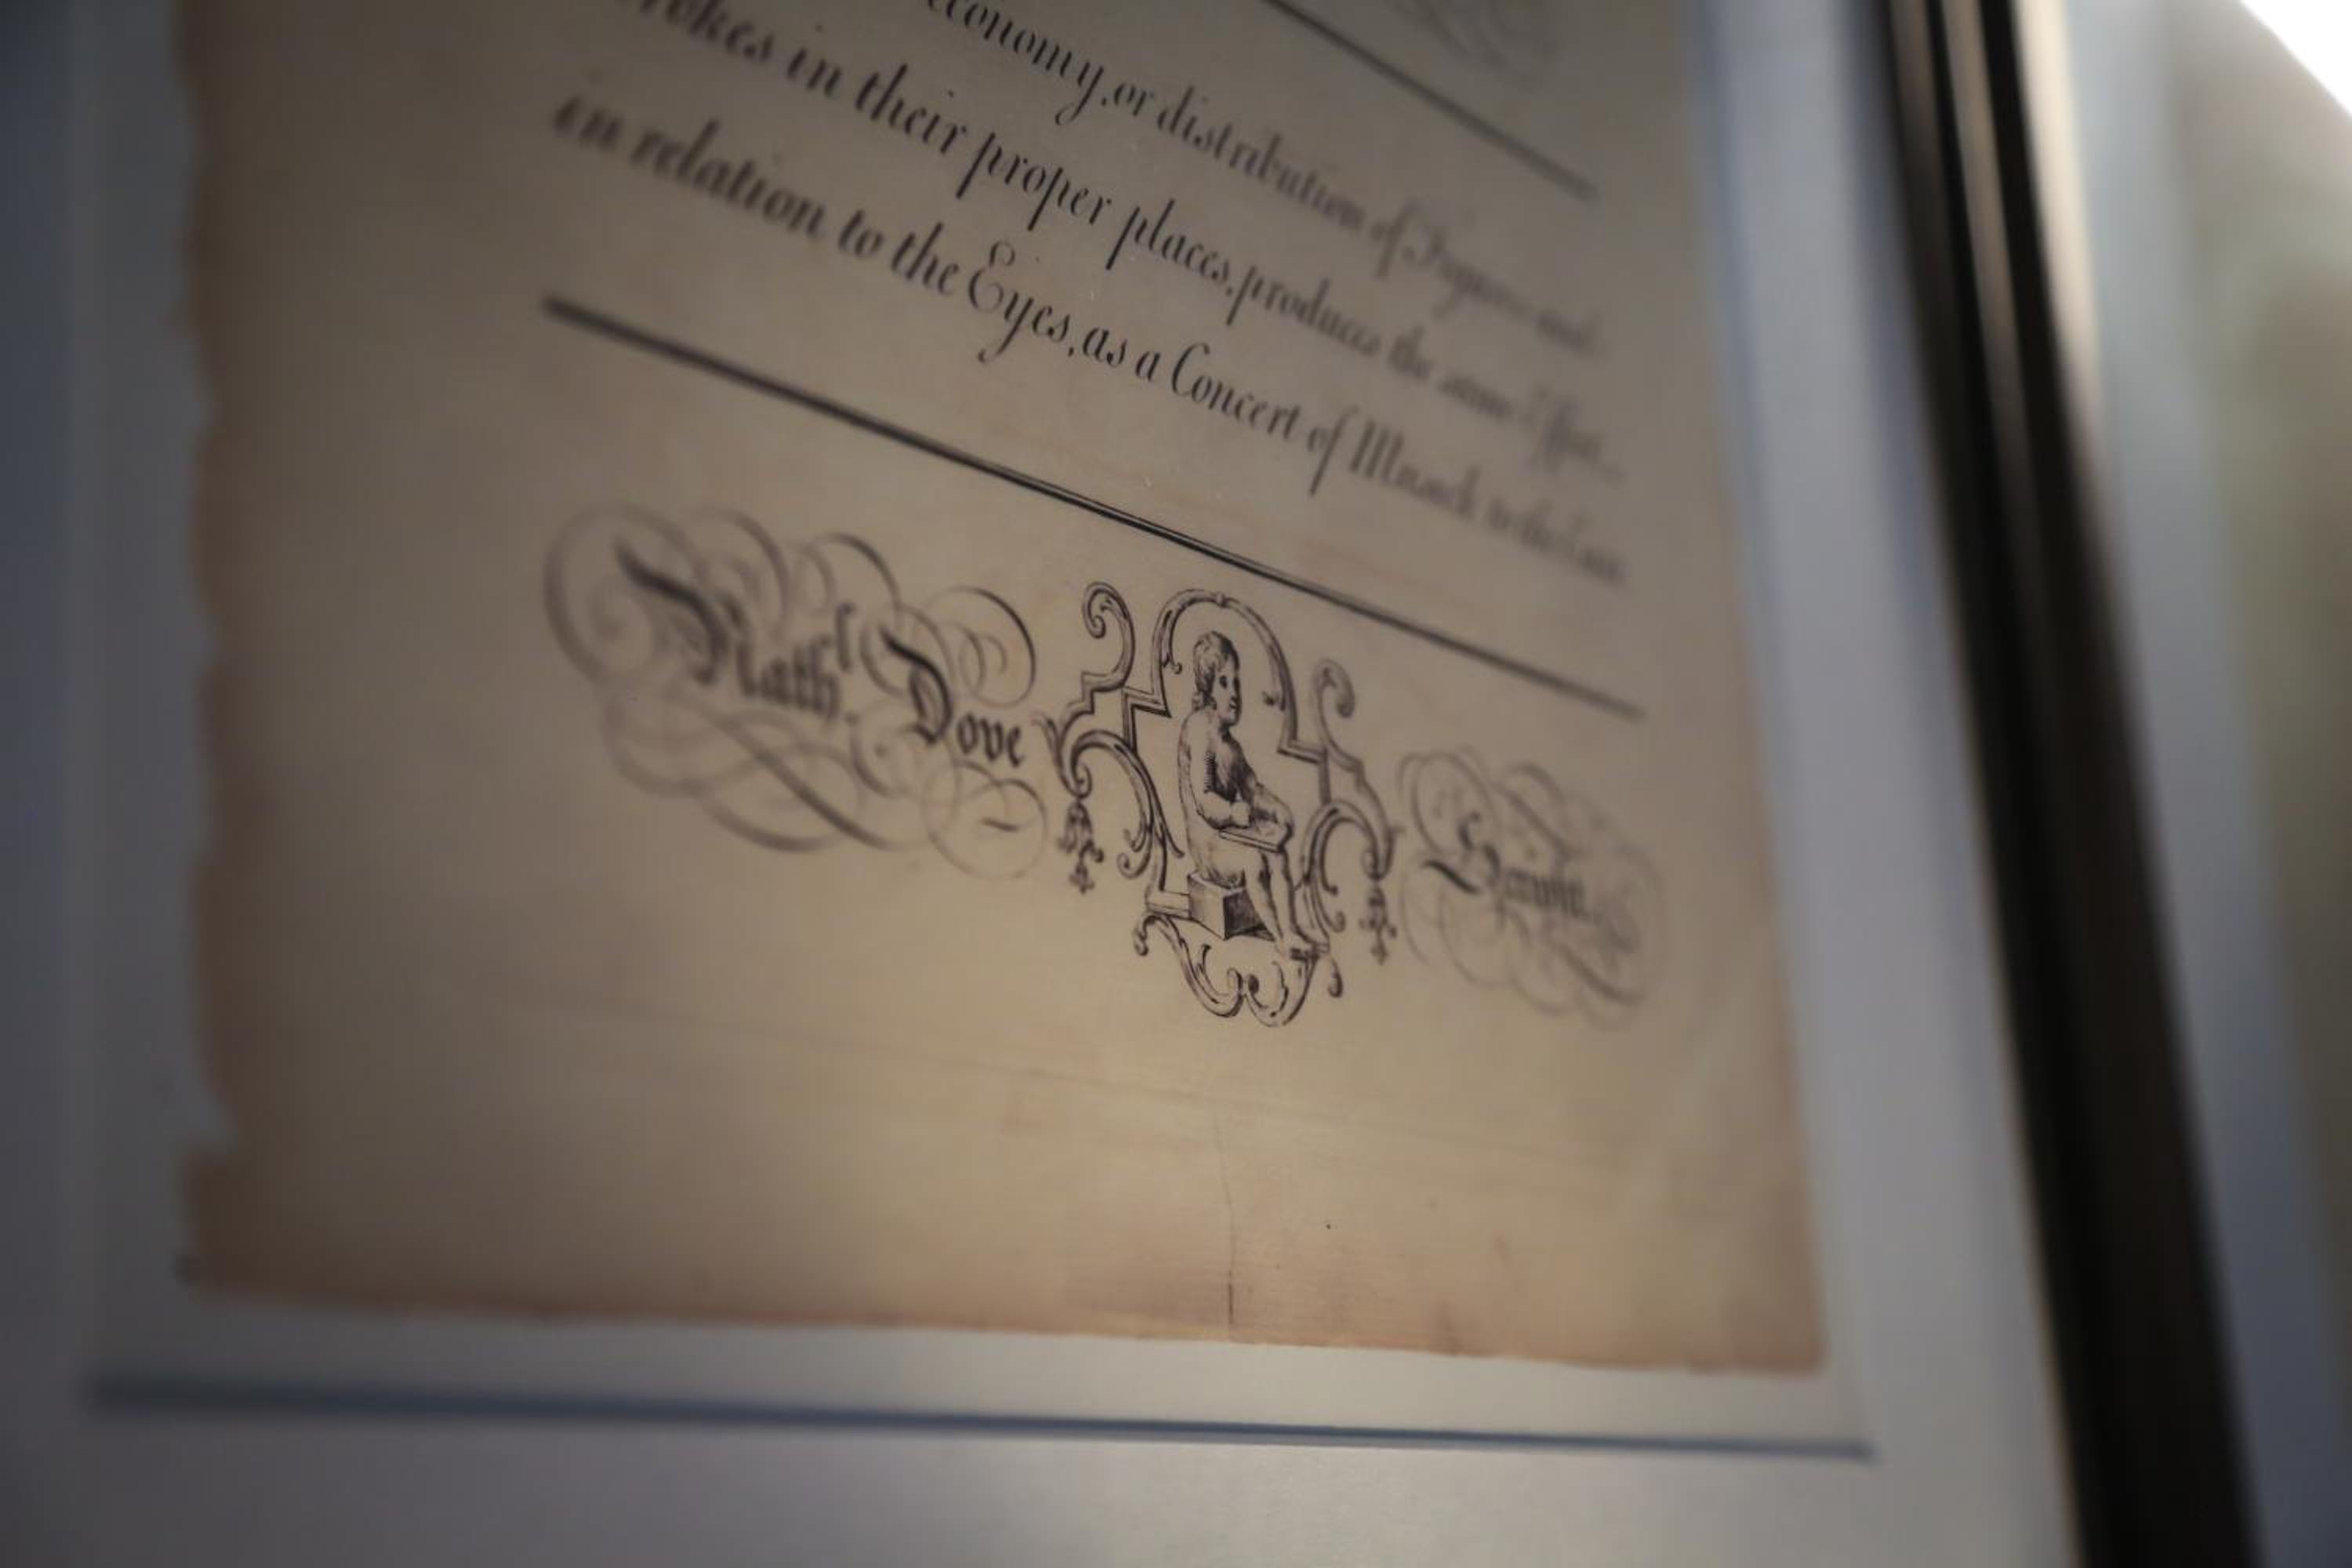 economy, or distribution of Figures and
in their proper places, produces the same Effect,
in relation to the Eyes, as a Concert of Musick to the Ears
Nath.l Dove Scripsit.